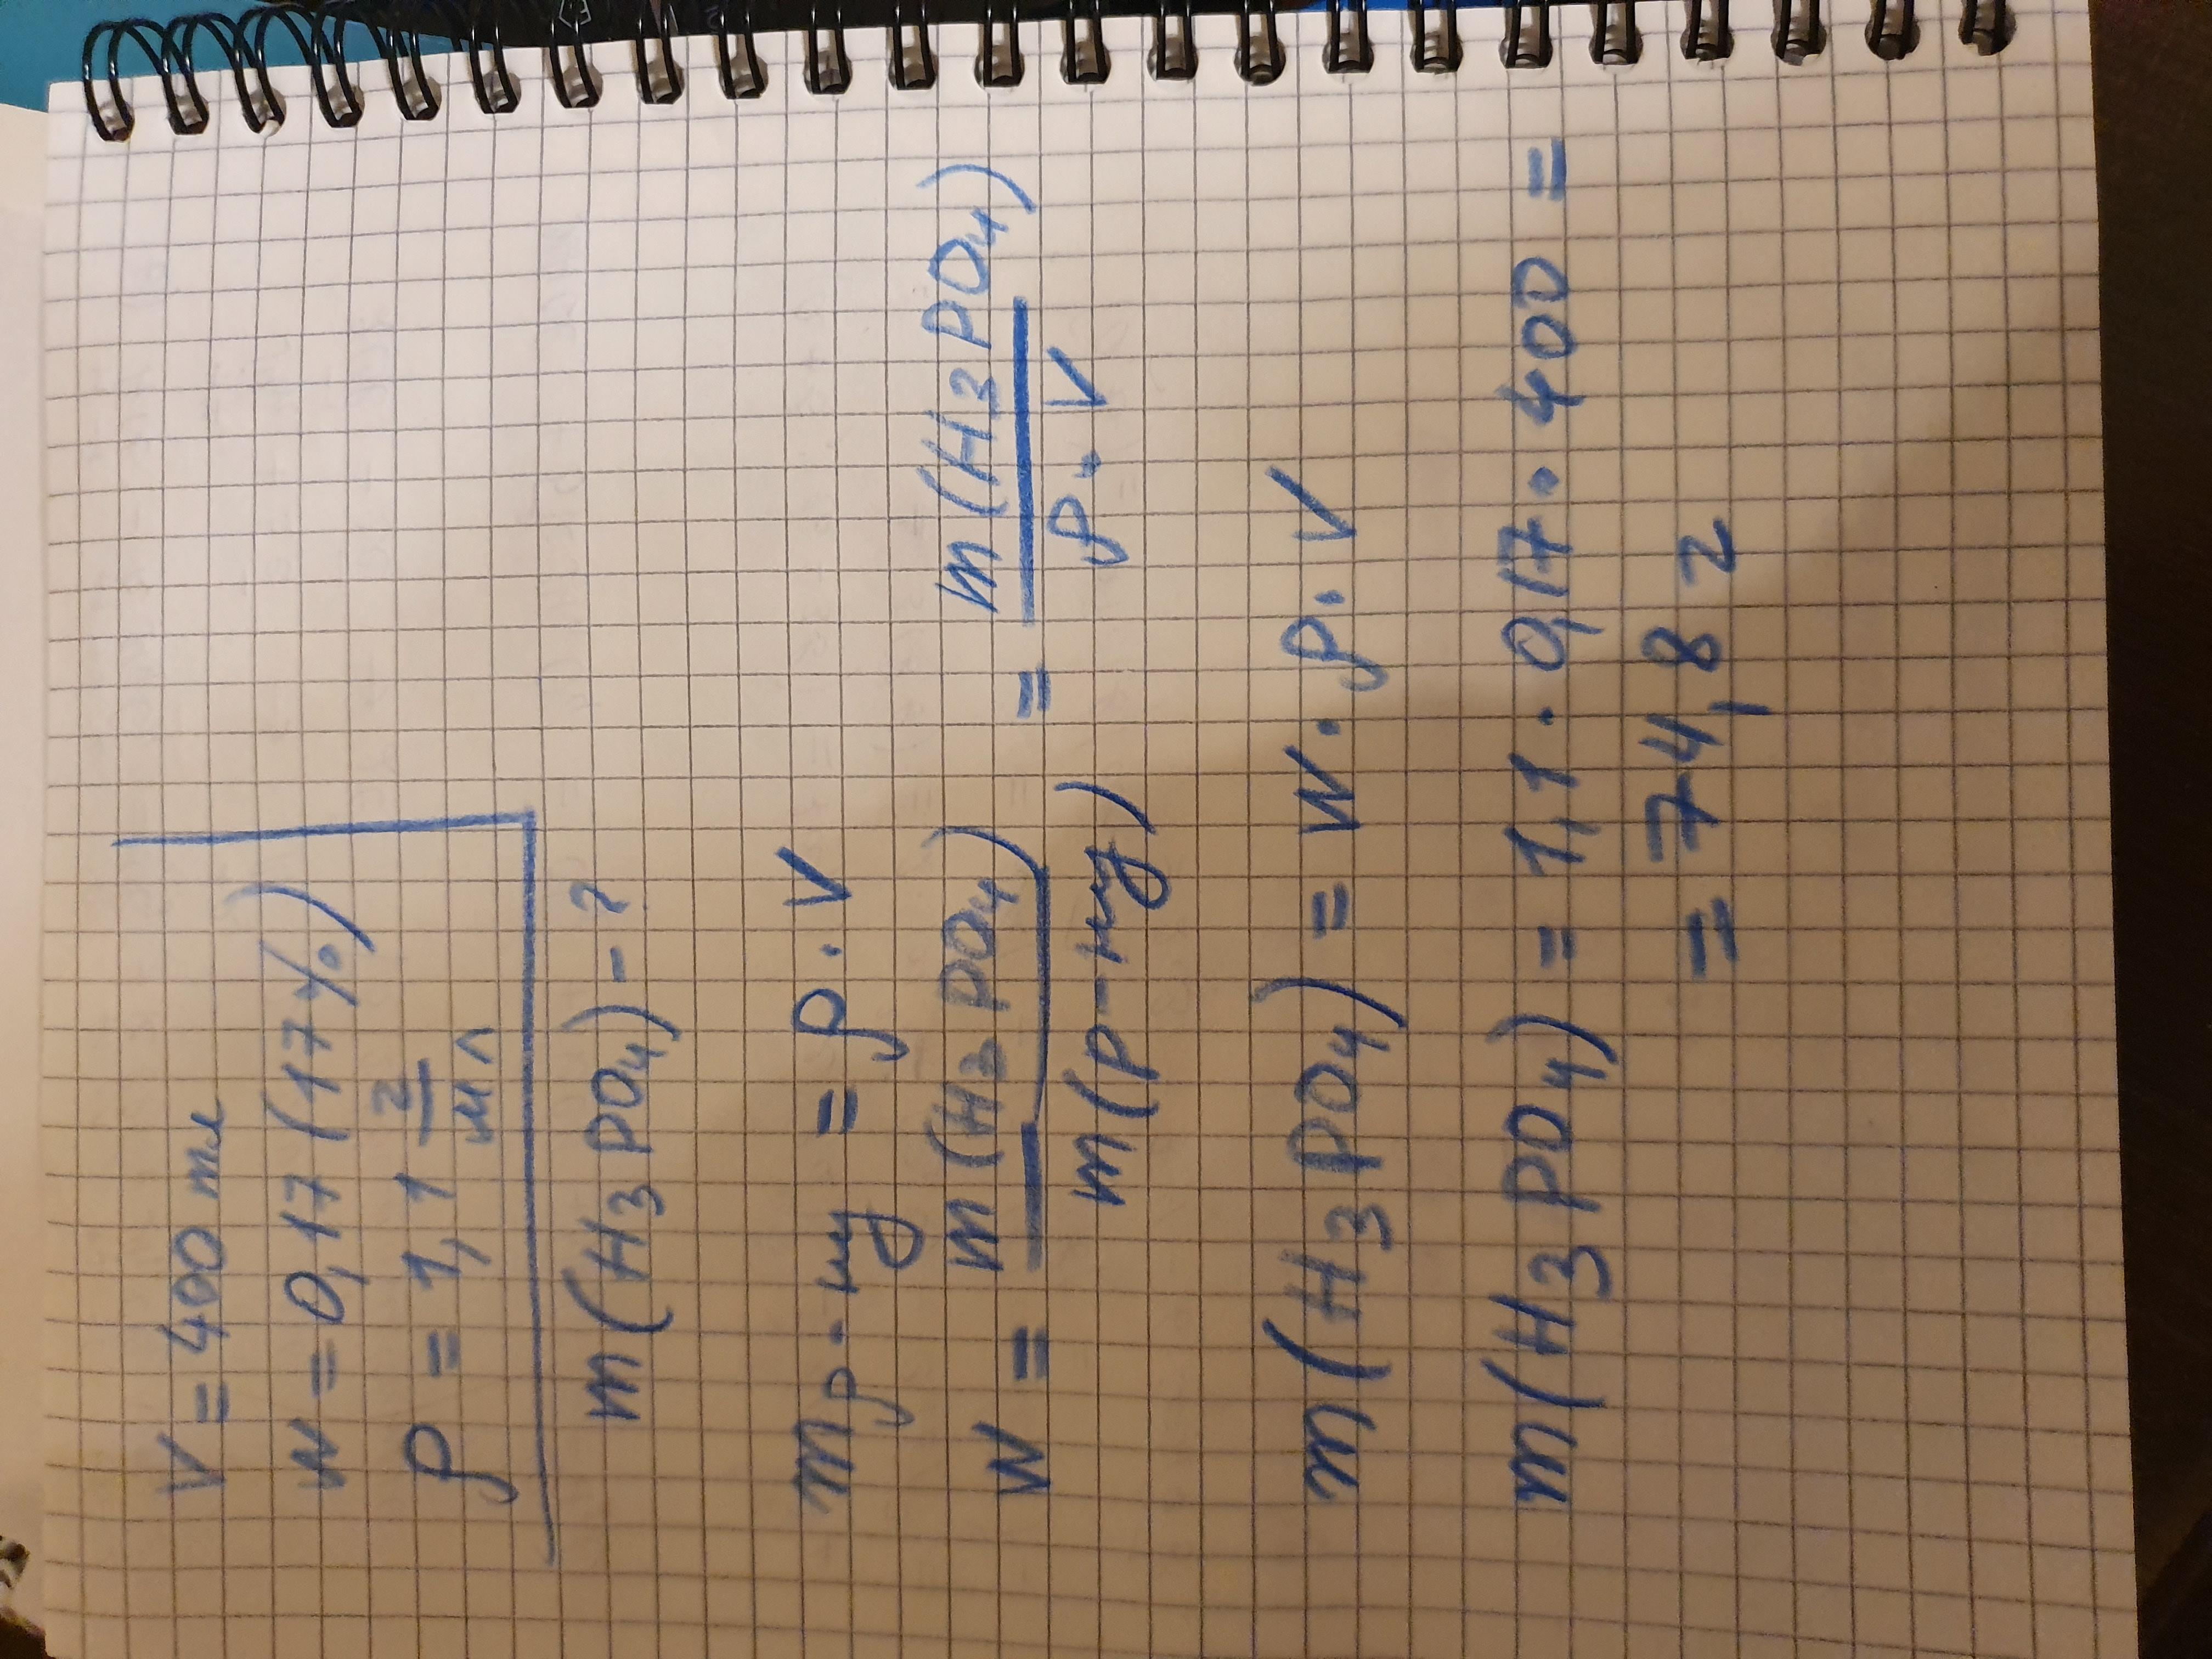 V = 400 мл
w = 0,17 (17%)
ρ = 1,1 г/мл
m(H₃PO₄) - ?
m р-ну = ρ · V
w = m(H₃PO₄)/m(р-ну) = m(H₃PO₄)/ρ · V
m(H₃PO₄) = w · ρ · V
m(H₃PO₄) = 1,1 · 0,17 · 400 =
= 74,8 г